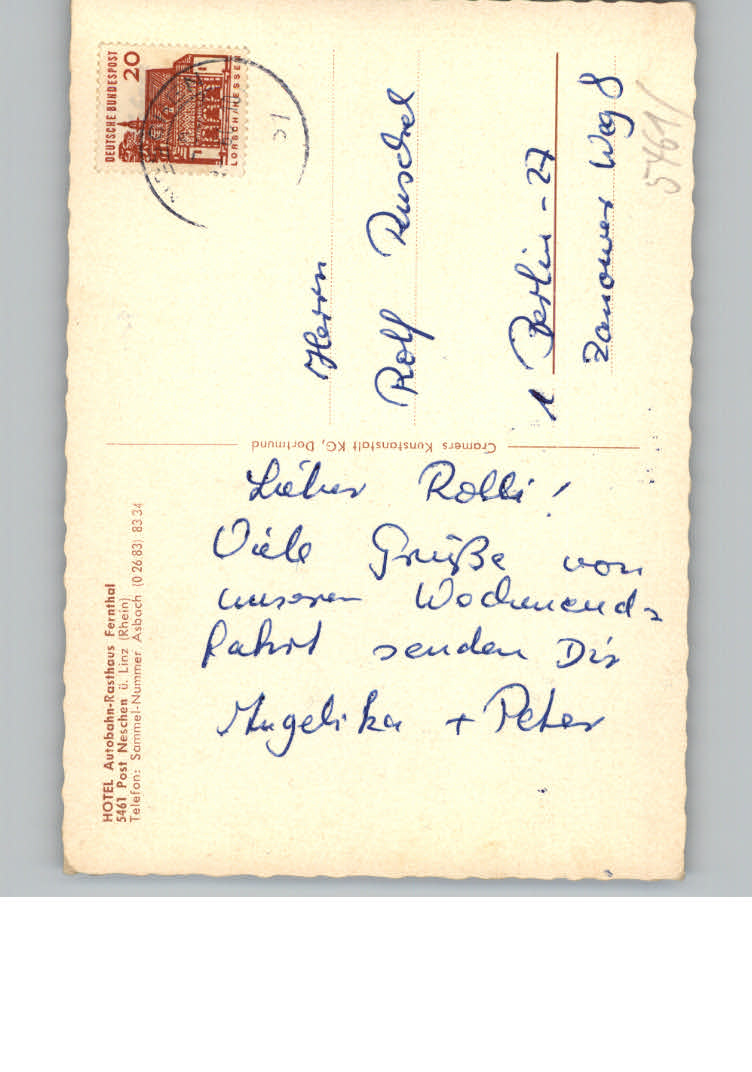 HOTEL Autobahn-Rasthaus Fernthal
5461 Post Neschen ü. Linz (Rhein)
Telefon: Sammel-Nummer Asbach (0 26 83) 83 34
Lieber Rolli!
Viele Grüße von
unseren Wochenend-
fahrt senden Dir
Angelika + Peter
Cramers Kunstanstalt KG, Dortmund
DEUTSCHE BUNDESPOST
20
LORSCH/HESSEN
Herrn
Rolf Ruschel
1 Berlin-27
Zanower Weg 8
5461/